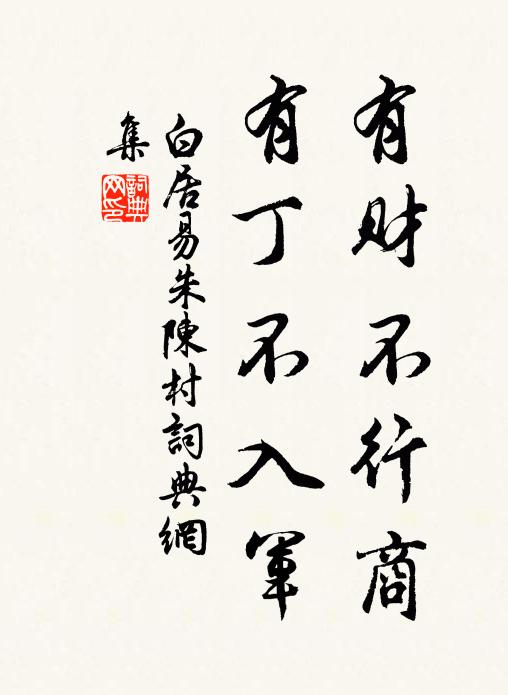 有财不行商
有丁不入軍
白居易朱陳村詞典網
集
詞典
网印